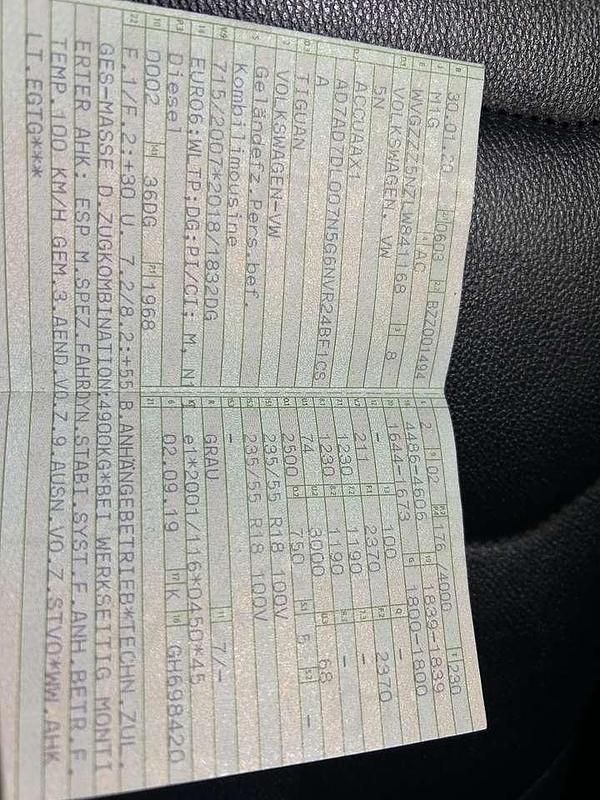 30.01.20 0603 BZZ001494
M1G AC
WVGZZZ5NZLW841168 8
VOLKSWAGEN, VW
5N
ACCURAX1
AD7AD7DL007N566NVR24BF1CS
A
TIGUAN
VOLKSWAGEN-VW
Geländefz.Pers.bef.
Kombilimousine
715/2007*2018/1832DG
EURO6;WLTP;DG;PI/CI; M, N1
Diesel
0002 36DG 1968
2 02 176 /4000 230
4486-4606 1839-1839
1644-1673 1800-1800
- 100 -
211 2370 2370
1230 1190 -
1230 1190 -
74 3000 68
2500 750 5 -
235/55 R18 100V
235/55 R18 100V
-
GRAU 7/-
e1*2001/116*0450*45
02.09.19 K GH698420
F.1/F.2:+30 U. 7.2/8.2:+55 B.ANHÄNGEBETRIEB*TECHN.ZUL.
GES-MASSE D.ZUGKOMBINATION:4900KG*BEI WERKSEITIG MONTI
ERTER AHK: ESP M.SPEZ.FAHRDYN.STABI.SYST.F.ANH.BETR.F.
TEMP.100 KM/H GEM.3.AEND.VO.Z.9.AUSN.VO.Z.STVO*WW.AHK
LT.EGTG***